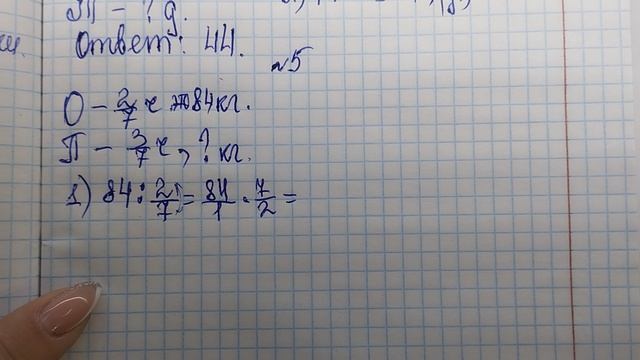 ЗП - ? д.
Ответ: 44.
№5
О - 2/7 ч 84 кг.
П - 3/7 ч, ? кг.
1) 84 : 2/7 = 84/1 · 7/2 =